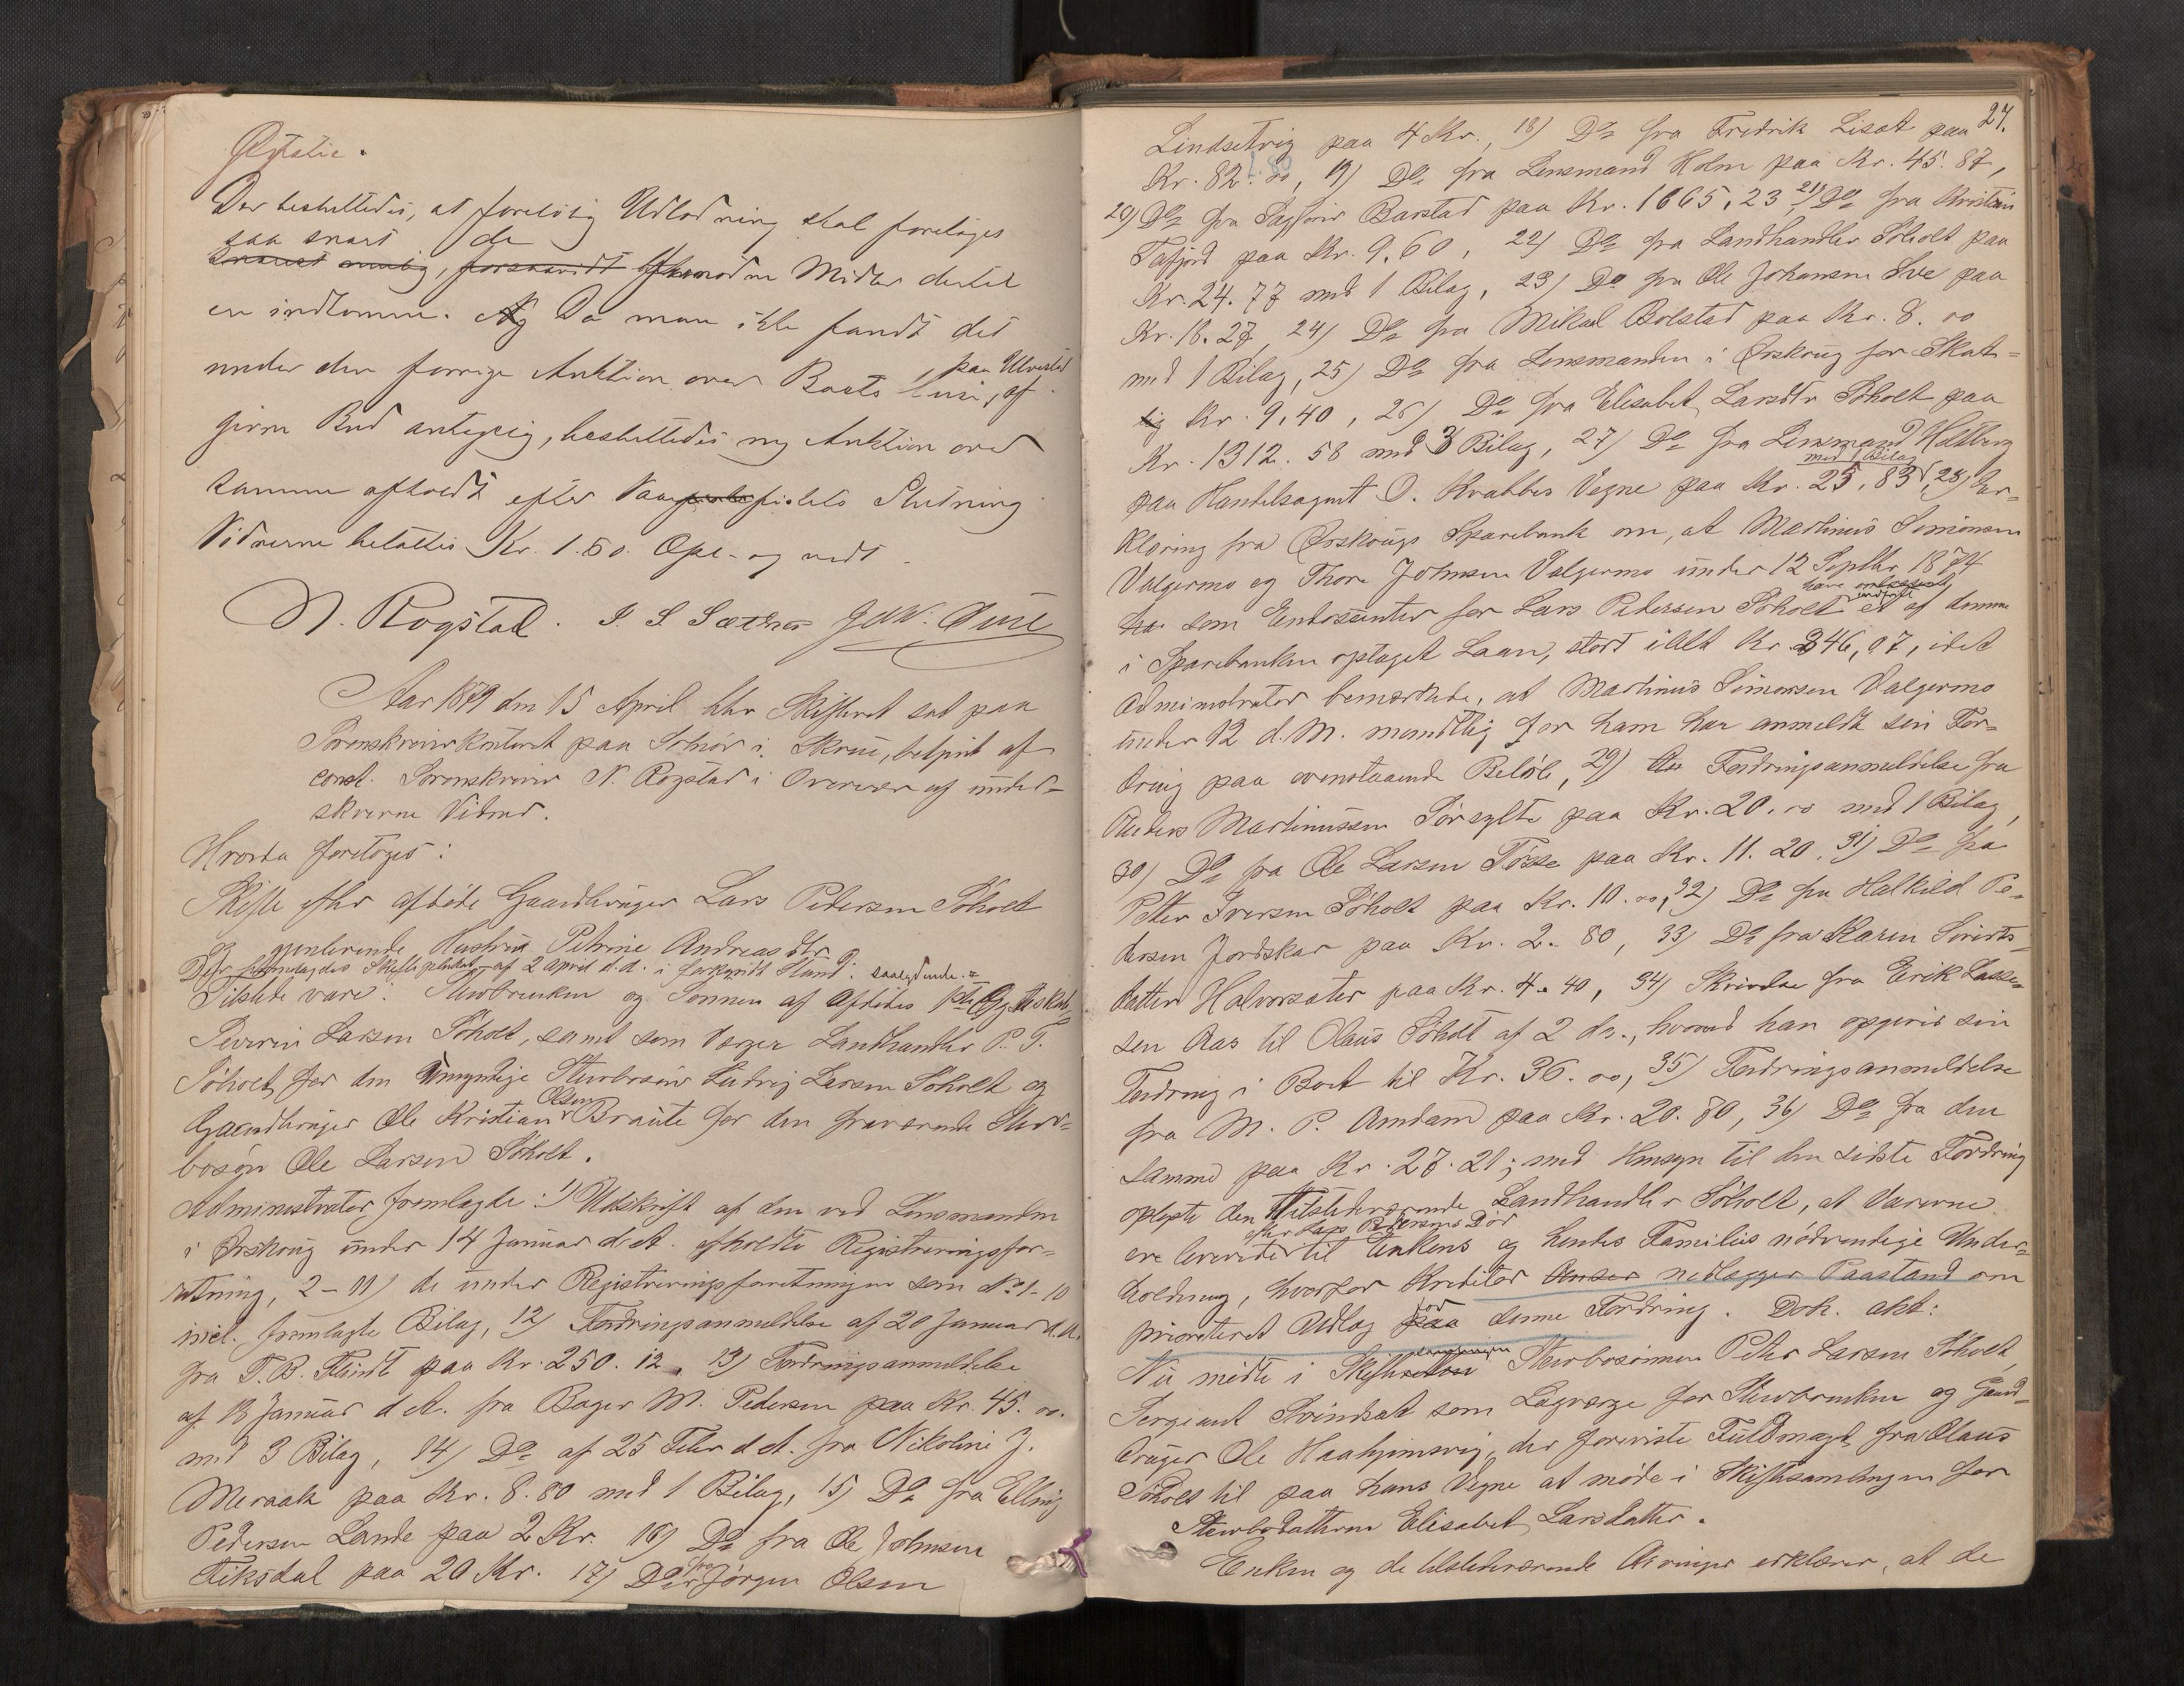 Der besluttedes, at foreløbig Udlodning skal foretages
saa snart de
snarest mulig, forsaavidt fornødne Midler dertil
er indkomne. Da man ikke fandt det
under den forrige Auktion over Boets
, paa Ulvestad
givne Bud antagelig, besluttedes ny Auktion over
samme afholdt efter Slutning
Vidnerne betaltes Kr. 1.60. Opl. og vedt.
N. Rogstad. I. S. Sæther
Aar 1879 den 15 April blev Skifteret sat paa
Sorenskriverkontoret paa Solnør i Skoue, betjent af
const. Sorenskriver N. Rogstad i Overvær af under-
skrevne Vidner.
Hvorda foretoges:
Skifte efter afdøde Gaardbruger Lars Petersen Søholt
og genlevende Hustru Petrine Andreasdtr.
Der fremlagdes Skifteplakat af 2 April d. A. i forkyndt Stand. saalydende:
Tilstede vare: Sterboenken og Sønnen af Afdødes 1ste Ægteskab,
Severin Larsen Søholt, samt som Værger Landhandler P. T.
Søholt for den umyndige Sterbosøn Ludvig Larsen Søholt og
Gaardbruger Ole Kristian Olsen Braute for den fraværende Sterv-
bosøn Ole Larsen Søholt.
Administrator fremlagde: 1) Udskrift af den ved Lensmanden
i Ørskoug under 14 Januar d. A. afholdte Registreringsfor-
retning, 2-11) de under Registreringsforretningen som No 1-10
incl. fremlagte Bilag, 12) Fordringsanmeldelse af 20 Januar d. A.
fra T. B. Flindt paa Kr. 250.12, 13) Fordringsanmeldelse
af 18 Januar d. A. fra Bager M. Pedersen paa Kr. 45.00
med 3 Bilag, 14) Do af 25 Febr. d. A. fra Nikoline J.
Meraak paa Kr. 8.80 med 1 Bilag, 15) Do fra Elling
Pedersen Lande paa 2 Kr. 16) Do fra Ole Johnsen
Fiksdal paa 20 Kr. 17) Do fra Jørgen Olsen
27.
Lindsetvig paa 4 Kr., 18) Do fra Fredrik Liset paa
Kr. 82.00, 19) Do fra Lensmand Holm paa Kr. 45.87,
20) Do fra Sagfører Barstad paa Kr. 1665.23, 21) Do fra Kristian
Tafjord paa Kr. 9.60, 22) Do fra Landhandler Søholt paa
Kr. 24.77 med 1 Bilag, 23) Do fra Ole Johansen Sve paa
Kr. 18.27, 24) Do fra Mikael Bolstad paa Kr. 8.00
med 1 Bilag, 25) Do fra Lensmanden i Ørskoug for Skat-
Kr. 9,40, 26) Do fra Elisabet Larsdtr. Søholt paa
Kr. 1312.58 med 3 Bilag, 27) Do fra Lensmand Holtberg
paa Handelsagent O. Krabbes Vegne paa Kr. 25.83 med 1 Bilag, 28) Er-
klæring fra Ørskougs Sparebank om, at Martinus Simonsen
Valgermo og Thore Johnsen Valgermo under 12 Septbr. 1874
har som Endossenter for Lars Petersen Søholt have indfriet et af denne
i Sparebanken optaget Laan, stort ialt Kr. 346,07, idet
Administrator bemærkede, at Martinus Simonsen Valgermo
under 12 d. M. mundtlig for ham har anmeldt sin For-
dring paa ovenstaaende Beløb, 29) Fordringsanmeldelse fra
Anders Martinussen Sørsylte paa Kr. 20.00 med 1 Bilag,
30) Do fra Ole Larsen Tøsse paa Kr. 11.20, 31) Do fra
Petter Iversen Søholt paa Kr. 10.00, 32) Do fra Halkild Pe-
dersen Jordskar paa Kr. 2.80, 33) Do fra Karen Siverts-
datter Halvorsæter paa Kr. 4.40, 34) Skrivelse fra Erik Lasse-
sen Aas til Olaus Søholt af 2 ds., hvorved han opgiver sin
Fordring i Boet til Kr. 36.00, 35) Fordringsanmeldelse
fra M. P. Amdam paa Kr. 20.80, 36) Do fra den
samme paa Kr. 27.21; med Hensyn til den sidste Fordring
oplyste den tilstedeværende Landhandler Søholt, at Varerne
ere leverede efter Lars Petersens Død til Enkens og hendes Families nødvendige Under-
holdning, hvorfor Kreditor nedlægger Paastand om
prioriteret Udlæg for denne Fordring. Dok. akt:
Nu mødte i Skiftesamlingen Sterbosønnen Peter Larsen Søholt,
Sergeant Svindset som Lagværge for Sterboenken og Gaard-
bruger Ole Haahjemsvig, der foreviste Fuldmagt fra Olaus
Søholt til paa hans Vegne at møde i Skiftesamlingen for
Sterbodatteren Elisabet Larsdatter.
Enken og de tilstedeværende Arvinger erklærer, at de